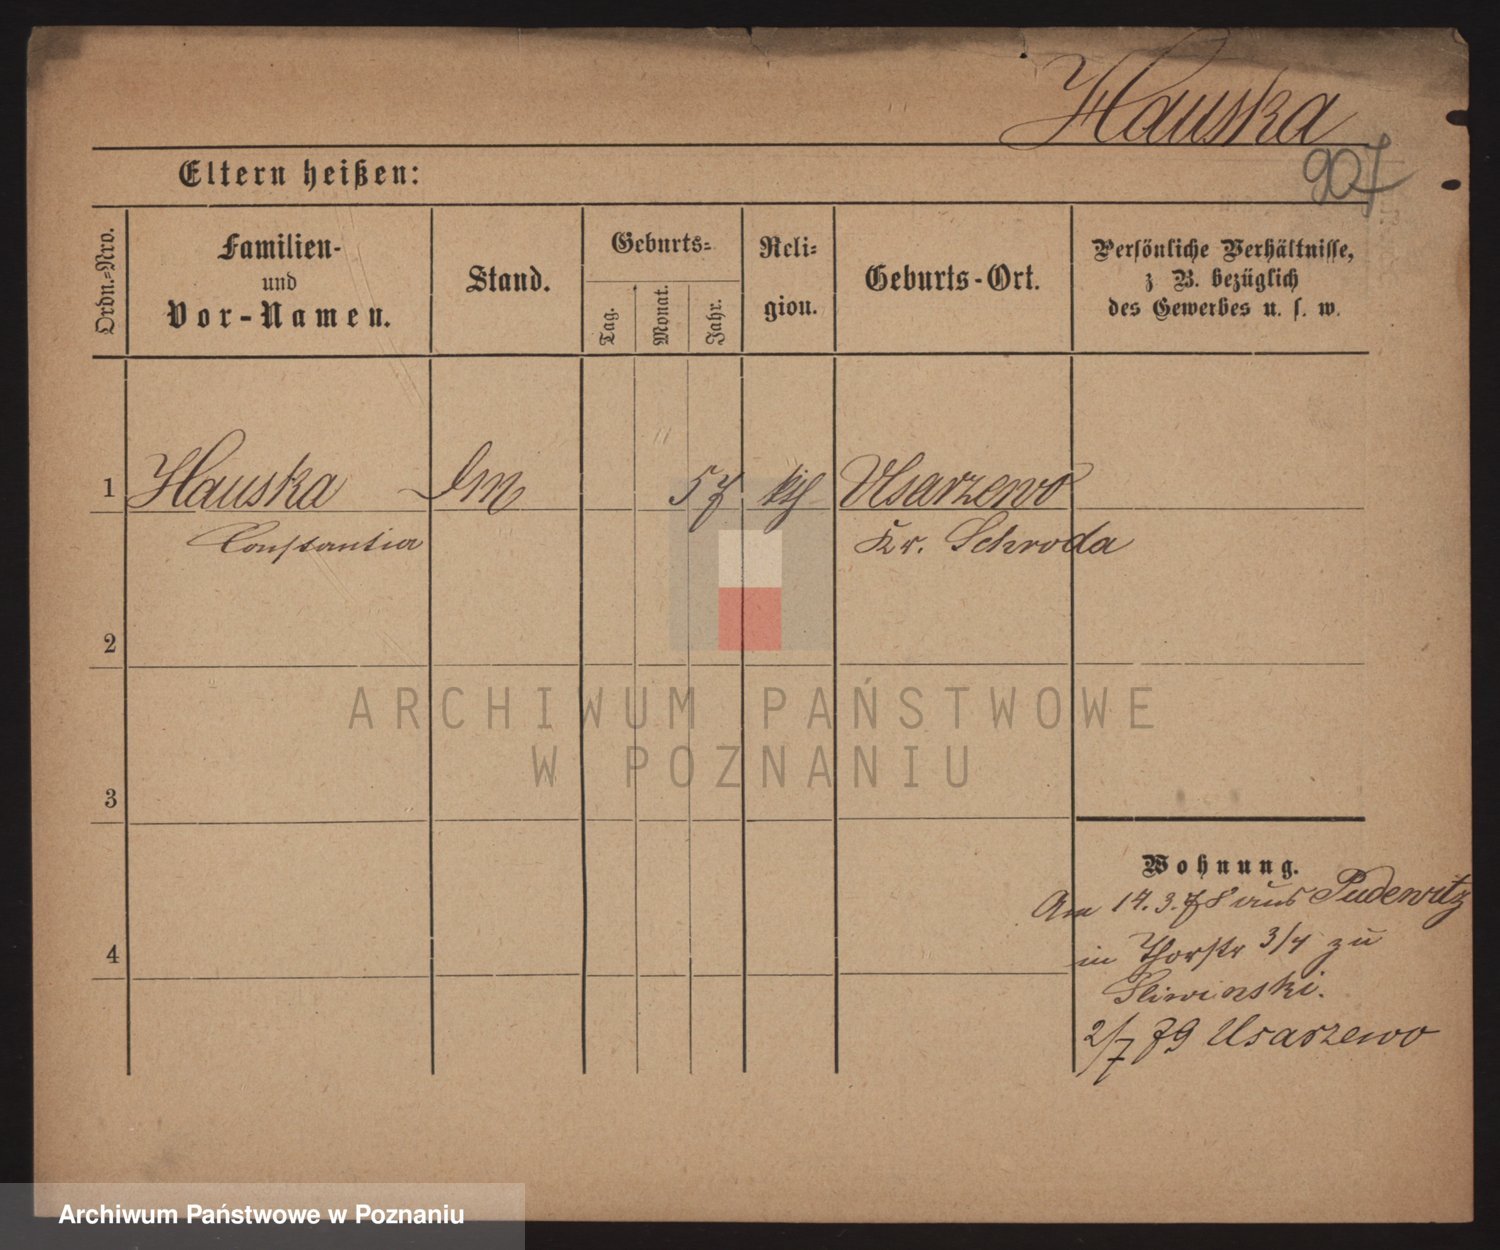 Hauska
907
Eltern heißen:
Ordn.=Nro.
Familien-
und
Vor-Namen.
Stand.
Geburts=
Tag.
Monat.
Jahr.
Reli=
gion.
Geburts-Ort.
Persönliche Verhältnisse,
z. B. bezüglich
des Gewerbes u. s. w.
1 Hauska 57 kth Usarzewo
Constantia Kr. Schroda
2
3
4
Wohnung.
Am 14.3.78 aus Pudewitz
in Thorstr 3/4 zu
Sliwinski.
2/7 79 Usarzewo
ARCHIWUM PAŃSTWOWE
W POZNANIU
Archiwum Państwowe w Poznaniu